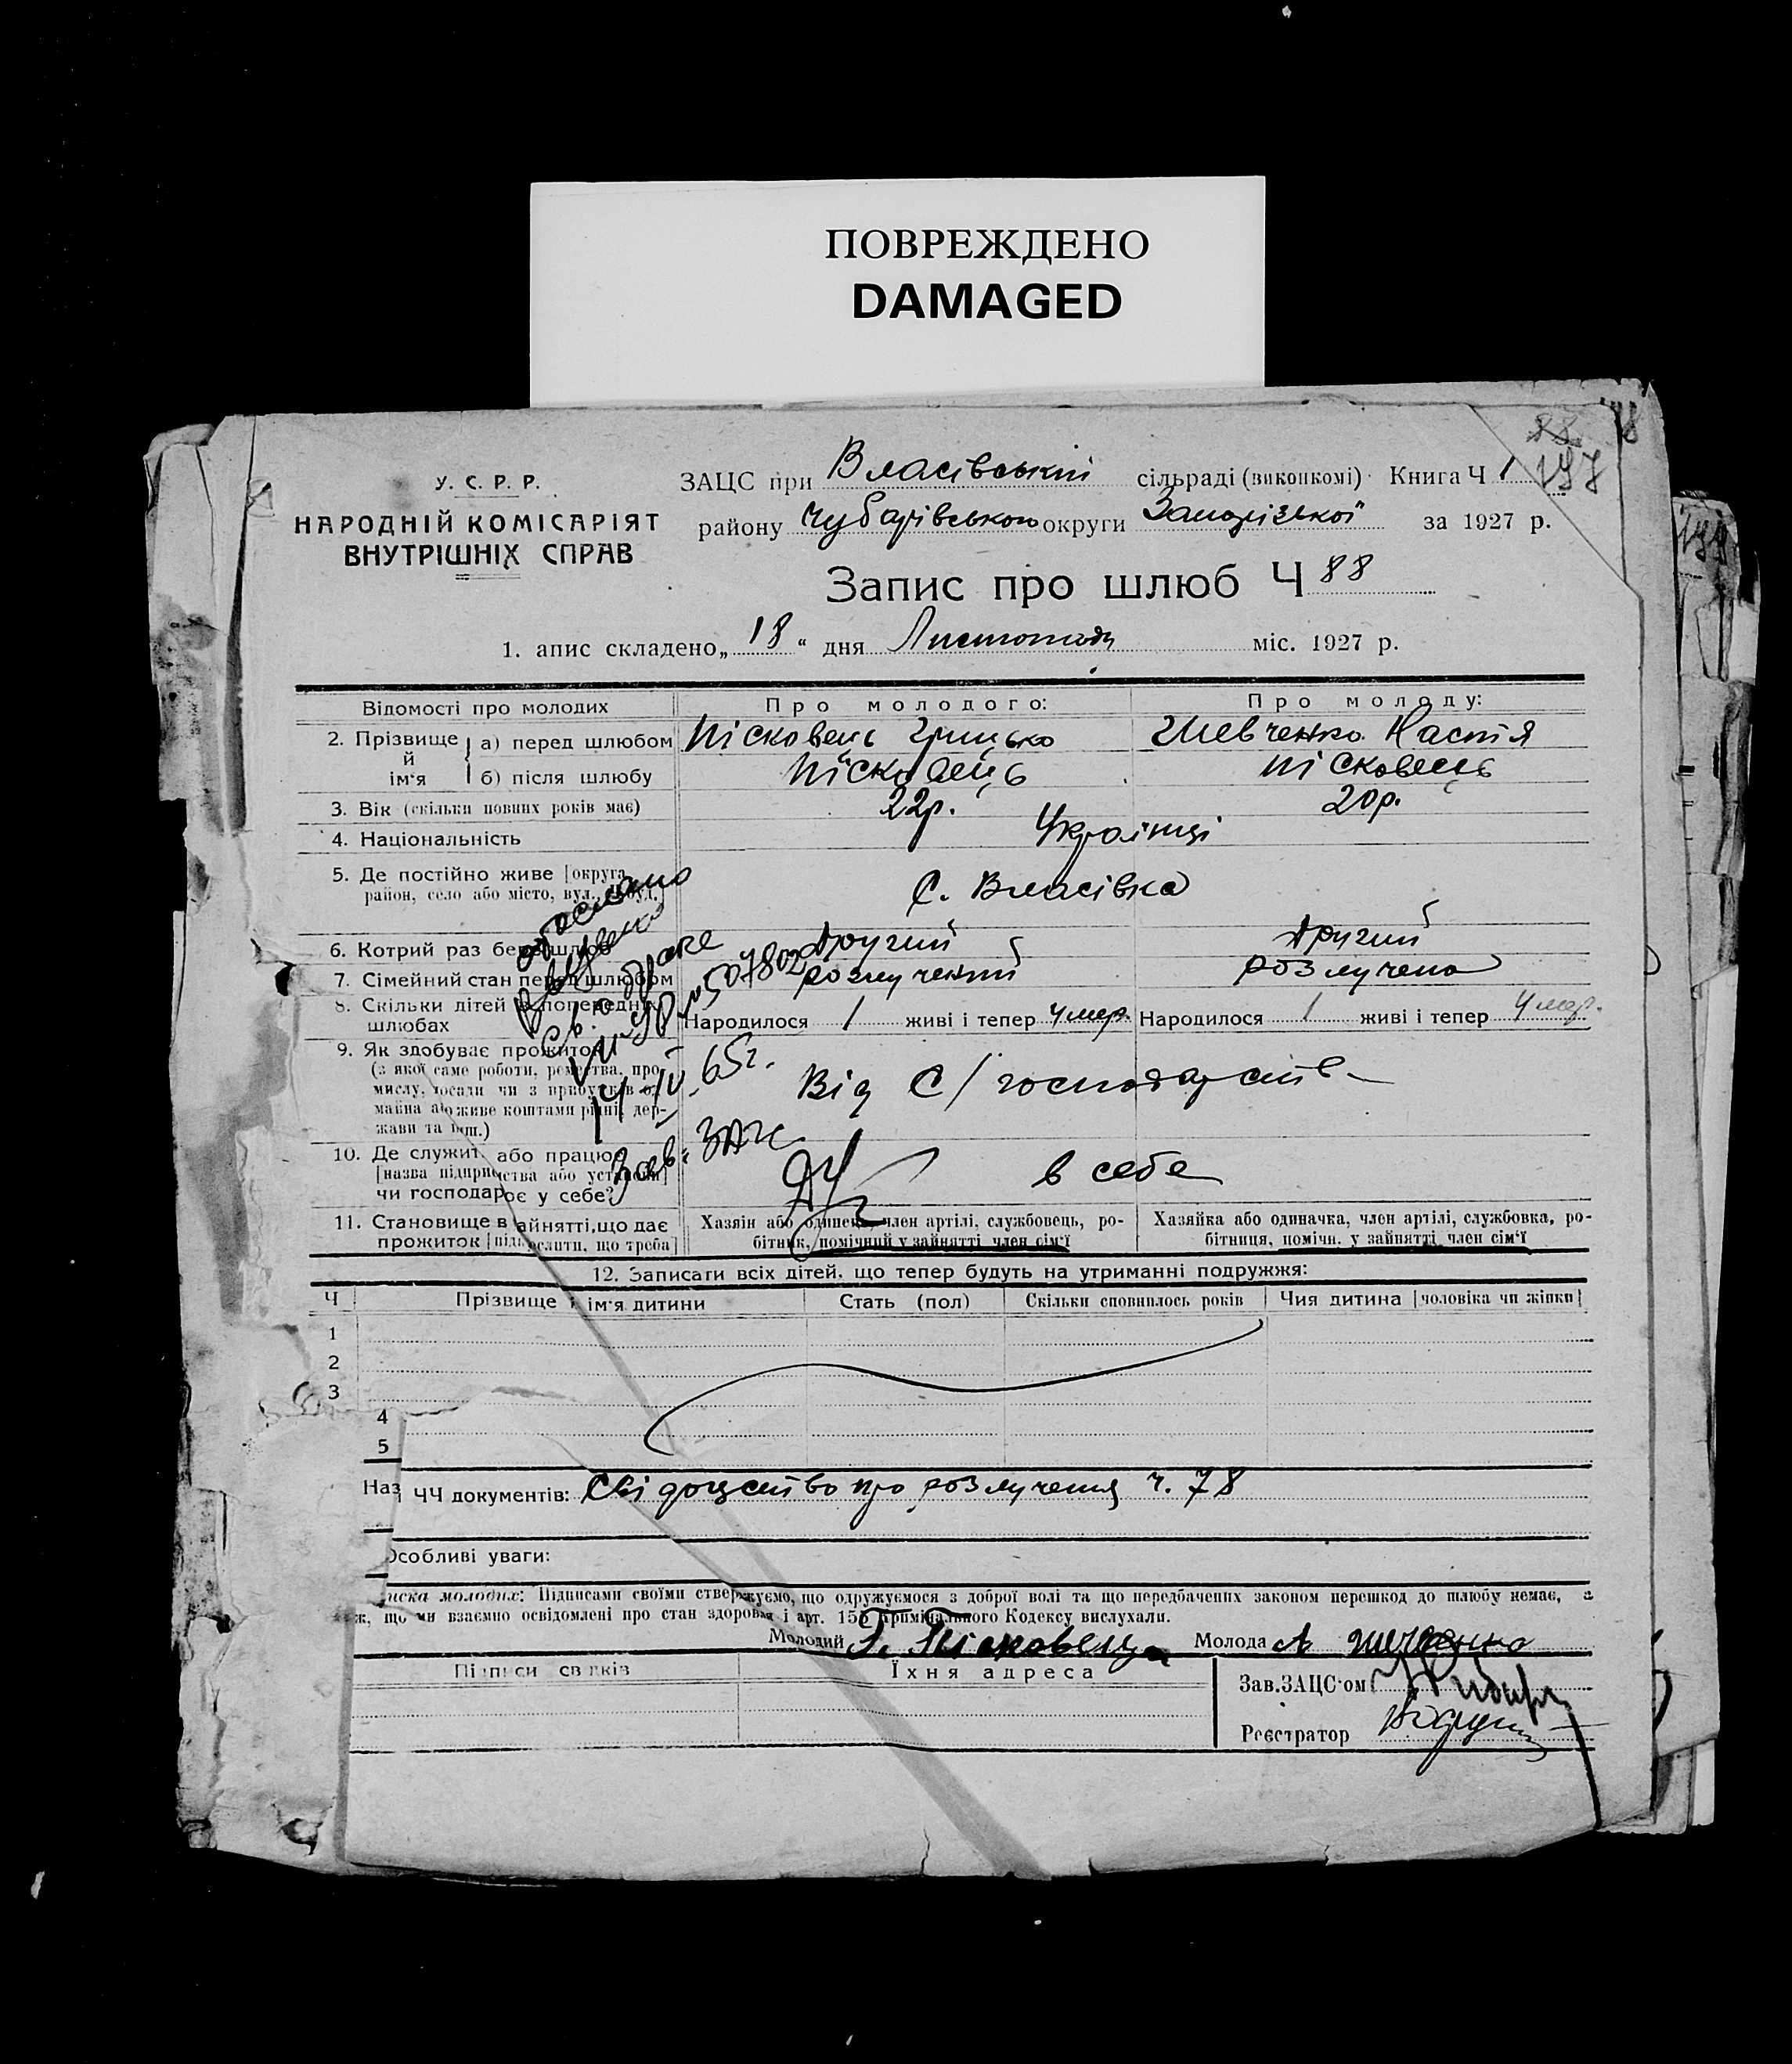 ПОВРЕЖДЕНО
DAMAGED
88
197
У. С. Р. Р.
НАРОДНІЙ КОМІСАРІЯТ
ВНУТРІШНІХ СПРАВ
ЗАЦС при Власівській сільраді (виконкомі) Книга Ч 1
району Чубарівського округи Запорізької за 1927 р.
Запис про шлюб Ч 88
1. апис складено „18“ дня Листопада міс. 1927 р.
Відомості про молодих Про молодого: Про молоду:
2. Прізвище й ім'я а) перед шлюбом Пісковець Грицько Шевченко Настя
б) після шлюбу Пісковець Пісковець
3. Вік (скільки повних років має) 22р. 20р.
4. Національність Українці
5. Де постійно живе [округа,
район, село або місто, вул., буд.] С. Власівка
6. Котрий раз бере шлюб Другий Другий
7. Сімейний стан перед шлюбом розлучений розлучена
8. Скільки дітей в попередніх
шлюбах Народилося 1 живі і тепер умер. Народилося 1 живі і тепер умер.
9. Як здобуває прожиток
(з якої саме роботи, ремества, про-
мислу, посади чи з прибутків від
майна або живе коштами рідні, дер-
жави та інш.) Від С/господарств
10. Де служить або працює
[назва підприємства або установи]
чи господарює у себе? в себе
11. Становище в зайнятті, що дає
прожиток [підкреслити, що треба]
Хазяін або одинець, член артілі, службовець, ро-
бітник, помічний у зайнятті член сім'ї
Хазяйка або одиначка, член артілі, службовка, ро-
бітниця, помічн. у зайнятті член сім'ї
о браке
507802
14-IV-65г.
Зав. ЗАГС
12. Записати всіх дітей, що тепер будуть на утриманні подружжя:
Ч Прізвище і ім'я дитини Стать (пол) Скільки сповнилось років Чия дитина [чоловіка чи жінки]
1
2
3
4
5
Наз ЧЧ документів: Свідоцтво про розлучення ч. 78
Особливі уваги:
иска молодих: Підписами своїми ствержуємо, що одружуємося з доброї волі та що передбачених законом перешкод до шлюбу немає, а
ж, що ми взаємно освідомлені про стан здоровья і арт. 155 Кримінального Кодексу вислухали.
Молодий Г. Пісковець Молода Шевченко
Підписи свідків Їхня адреса
Зав. ЗАЦС'ом
Реєстратор